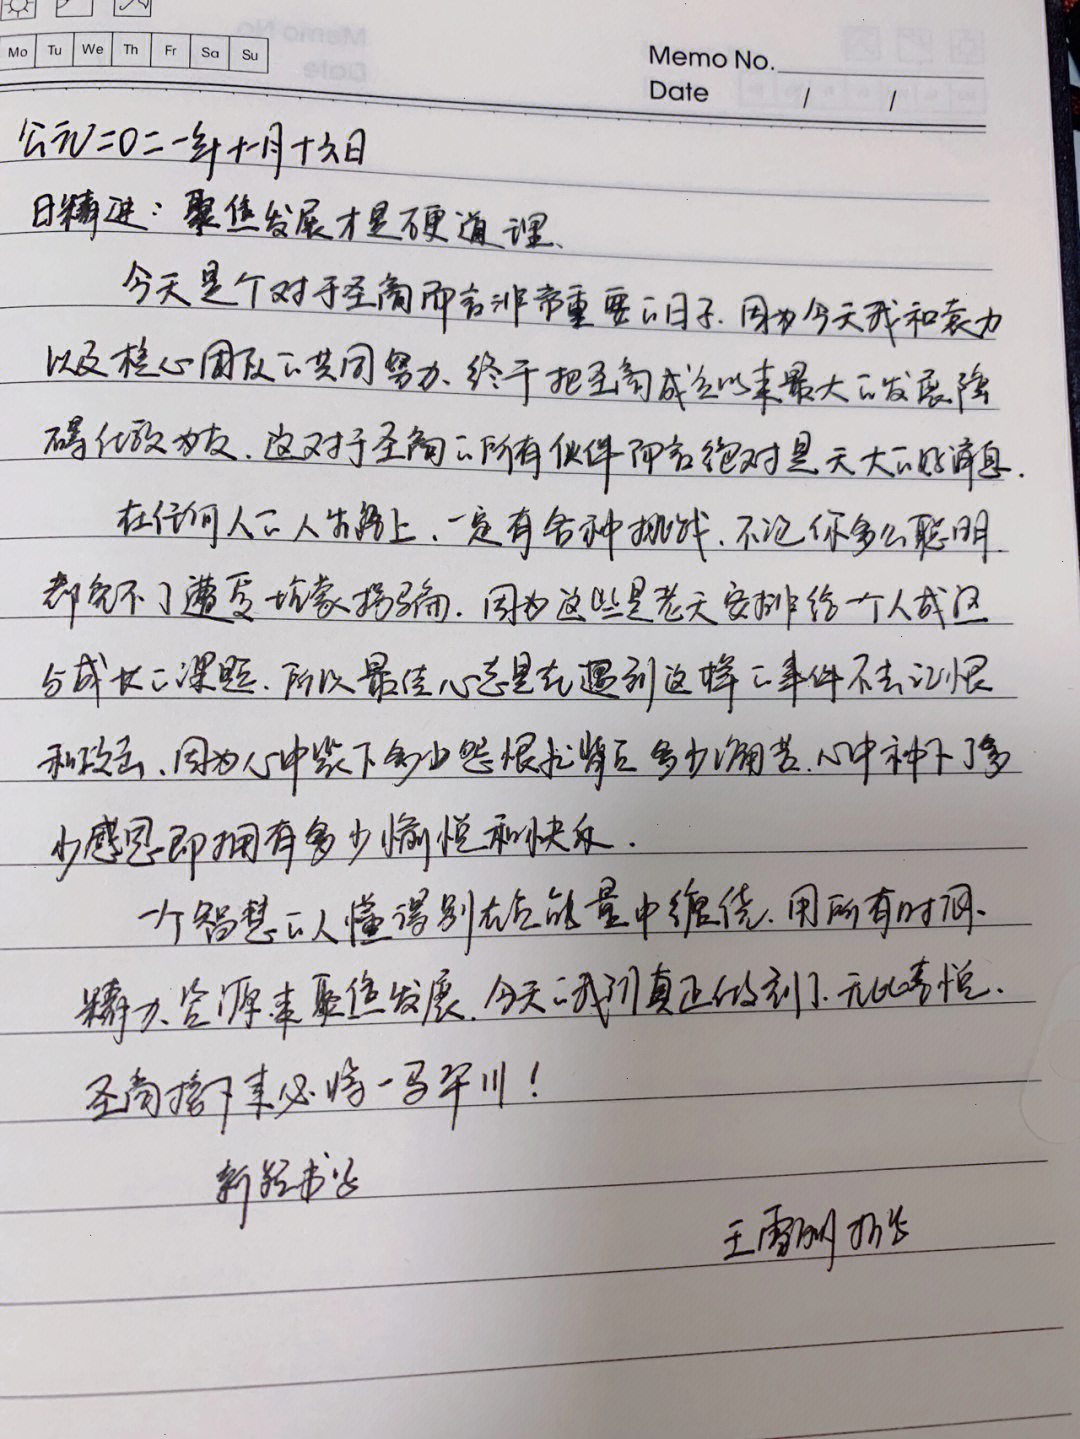 Mo Tu We Th Fr Sa Su
Memo No.
Date / /
公元二〇二一年十一月十六日
日精进：聚焦发展才是硬道理、
今天是个对于圣商而言非常重要的日子、因为今天我和袁力
以及核心团队的共同努力、终于把圣商成立以来最大的发展障
碍化敌为友、这对于圣商的所有伙伴而言绝对是天大的好消息.
在任何人的人生路上、一定有各种挑战、不论你多么聪明
都免不了遭受坑蒙拐骗、因为这些是老天安排给一个人成
与成长的课题、所以最佳心态是在遇到这样的事件不去记恨
和攻击、因为心中 下多少怨恨就 多少痛苦、心中种下了多
少感恩即拥有多少愉悦和快乐.
一个智慧的人懂得别在负能量中缠绕、用所有时间、
精力、资源来聚焦发展、今天的我们真正做到了、无比喜悦、
圣商接下来必将一马平川！
新 书
王雷